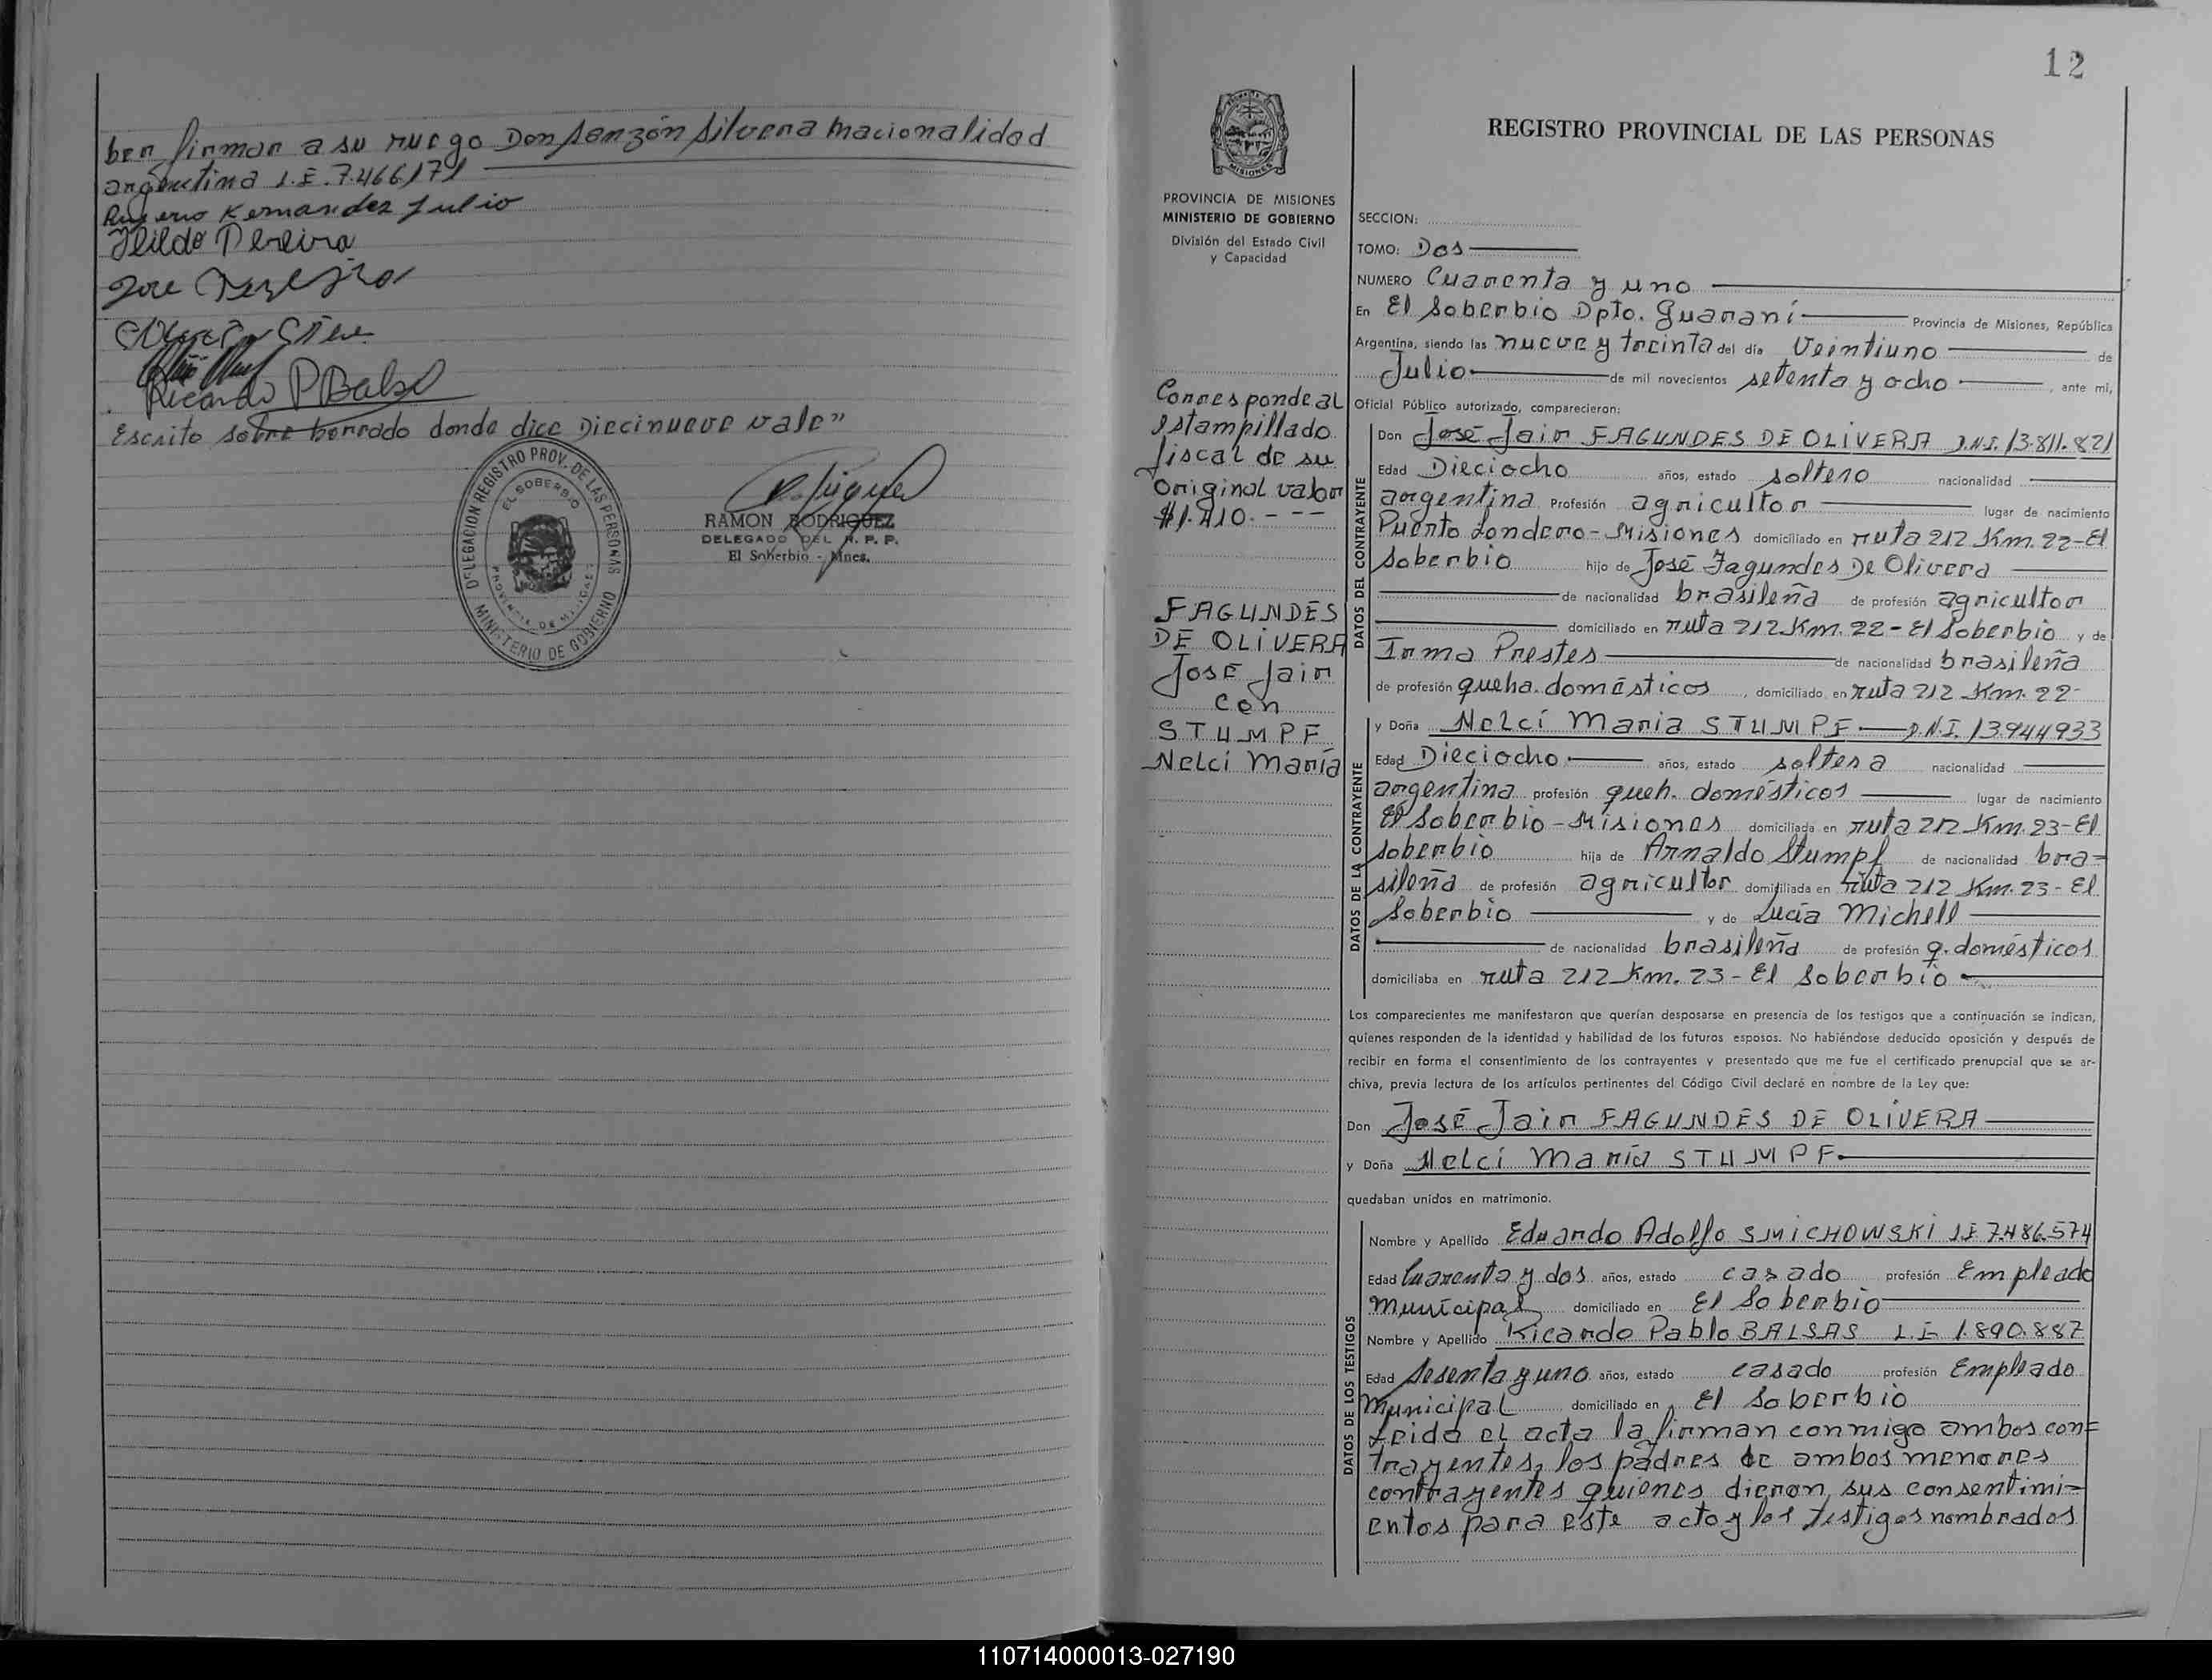 ber firmar a su ruego Don Sanzón Silvena nacionalidad
argentina L.E. 7.466.171
Rugerio Kernandez Julio
Ricardo P Balsa
Escrito sobre borrado donde dice Diecinueve vale"
DELEGACION REGISTRO PROV. DE LAS PERSONAS
EL SOBERBIO
PROVINCIA DE MISIONES
MINISTERIO DE GOBIERNO
RAMON RODRIGUEZ
DELEGADO DEL R. P. P.
El Soberbio - Mnes.
12
MISIONES
PROVINCIA DE MISIONES
MINISTERIO DE GOBIERNO
División del Estado Civil
y Capacidad
Corresponde al
estampillado
fiscal de su
original valor
$1.410.- - -
FAGUNDES
DE OLIVERA
José Jair
con
STUMPF
Nelci María
REGISTRO PROVINCIAL DE LAS PERSONAS
SECCION:
TOMO: Dos
NUMERO Cuarenta y uno
En El Soberbio Dpto. Guaraní Provincia de Misiones, República
Argentina, siendo las nueve y treinta del día Veintiuno de
Julio de mil novecientos setenta y ocho, ante mí,
Oficial Público autorizado, comparecieron:
DATOS DEL CONTRAYENTE
Don José Jair FAGUNDES DE OLIVERA D.N.I. 13.811.821
Edad Dieciocho años, estado soltero nacionalidad
argentina Profesión agricultor lugar de nacimiento
Puerto Londero - Misiones domiciliado en ruta 212 Km. 22 - El
Soberbio hijo de José Fagundes De Olivera
de nacionalidad brasileña de profesión agricultor
domiciliado en ruta 212 Km. 22 - El Soberbio y de
Irma Prestes de nacionalidad brasileña
de profesión queha. domésticos, domiciliado en ruta 212 Km. 22-
DATOS DE LA CONTRAYENTE
y Doña Nelcí Maria STUMPF D.N.I. 13944933
Edad Dieciocho años, estado soltera nacionalidad
argentina profesión queh. domésticos lugar de nacimiento
El Soberbio - Misiones domiciliada en ruta 212 Km. 23 - El
Soberbio hija de Arnaldo Stumpf de nacionalidad bra=
sileña de profesión agricultor domiciliada en ruta 212 Km. 23 - El
Soberbio y de Lucía Michell
de nacionalidad brasileña de profesión q. domésticos
domiciliaba en ruta 212 Km. 23 - El Soberbio
Los comparecientes me manifestaron que querían desposarse en presencia de los testigos que a continuación se indican,
quienes responden de la identidad y habilidad de los futuros esposos. No habiéndose deducido oposición y después de
recibir en forma el consentimiento de los contrayentes y presentado que me fue el certificado prenupcial que se ar-
chiva, previa lectura de los artículos pertinentes del Código Civil declaré en nombre de la Ley que:
Don José Jair FAGUNDES DE OLIVERA
y Doña Nelcí María STUMPF
quedaban unidos en matrimonio.
DATOS DE LOS TESTIGOS
Nombre y Apellido Eduardo Adolfo SMICHOWSKI L.E 7.486.574
Edad Cuarenta y dos años, estado casado profesión Empleado
Municipal domiciliado en El Soberbio
Nombre y Apellido Ricardo Pablo BALSAS L.E 1.890.887
Edad Sesenta y uno años, estado casado profesión Empleado
Municipal domiciliado en El Soberbio
Leida el acta la firman conmigo ambos con=
trayentes, los padres de ambos menores
contrayentes quienes dieron sus consentimi=
entos para este acto y los testigos nombrados
110714000013-027190